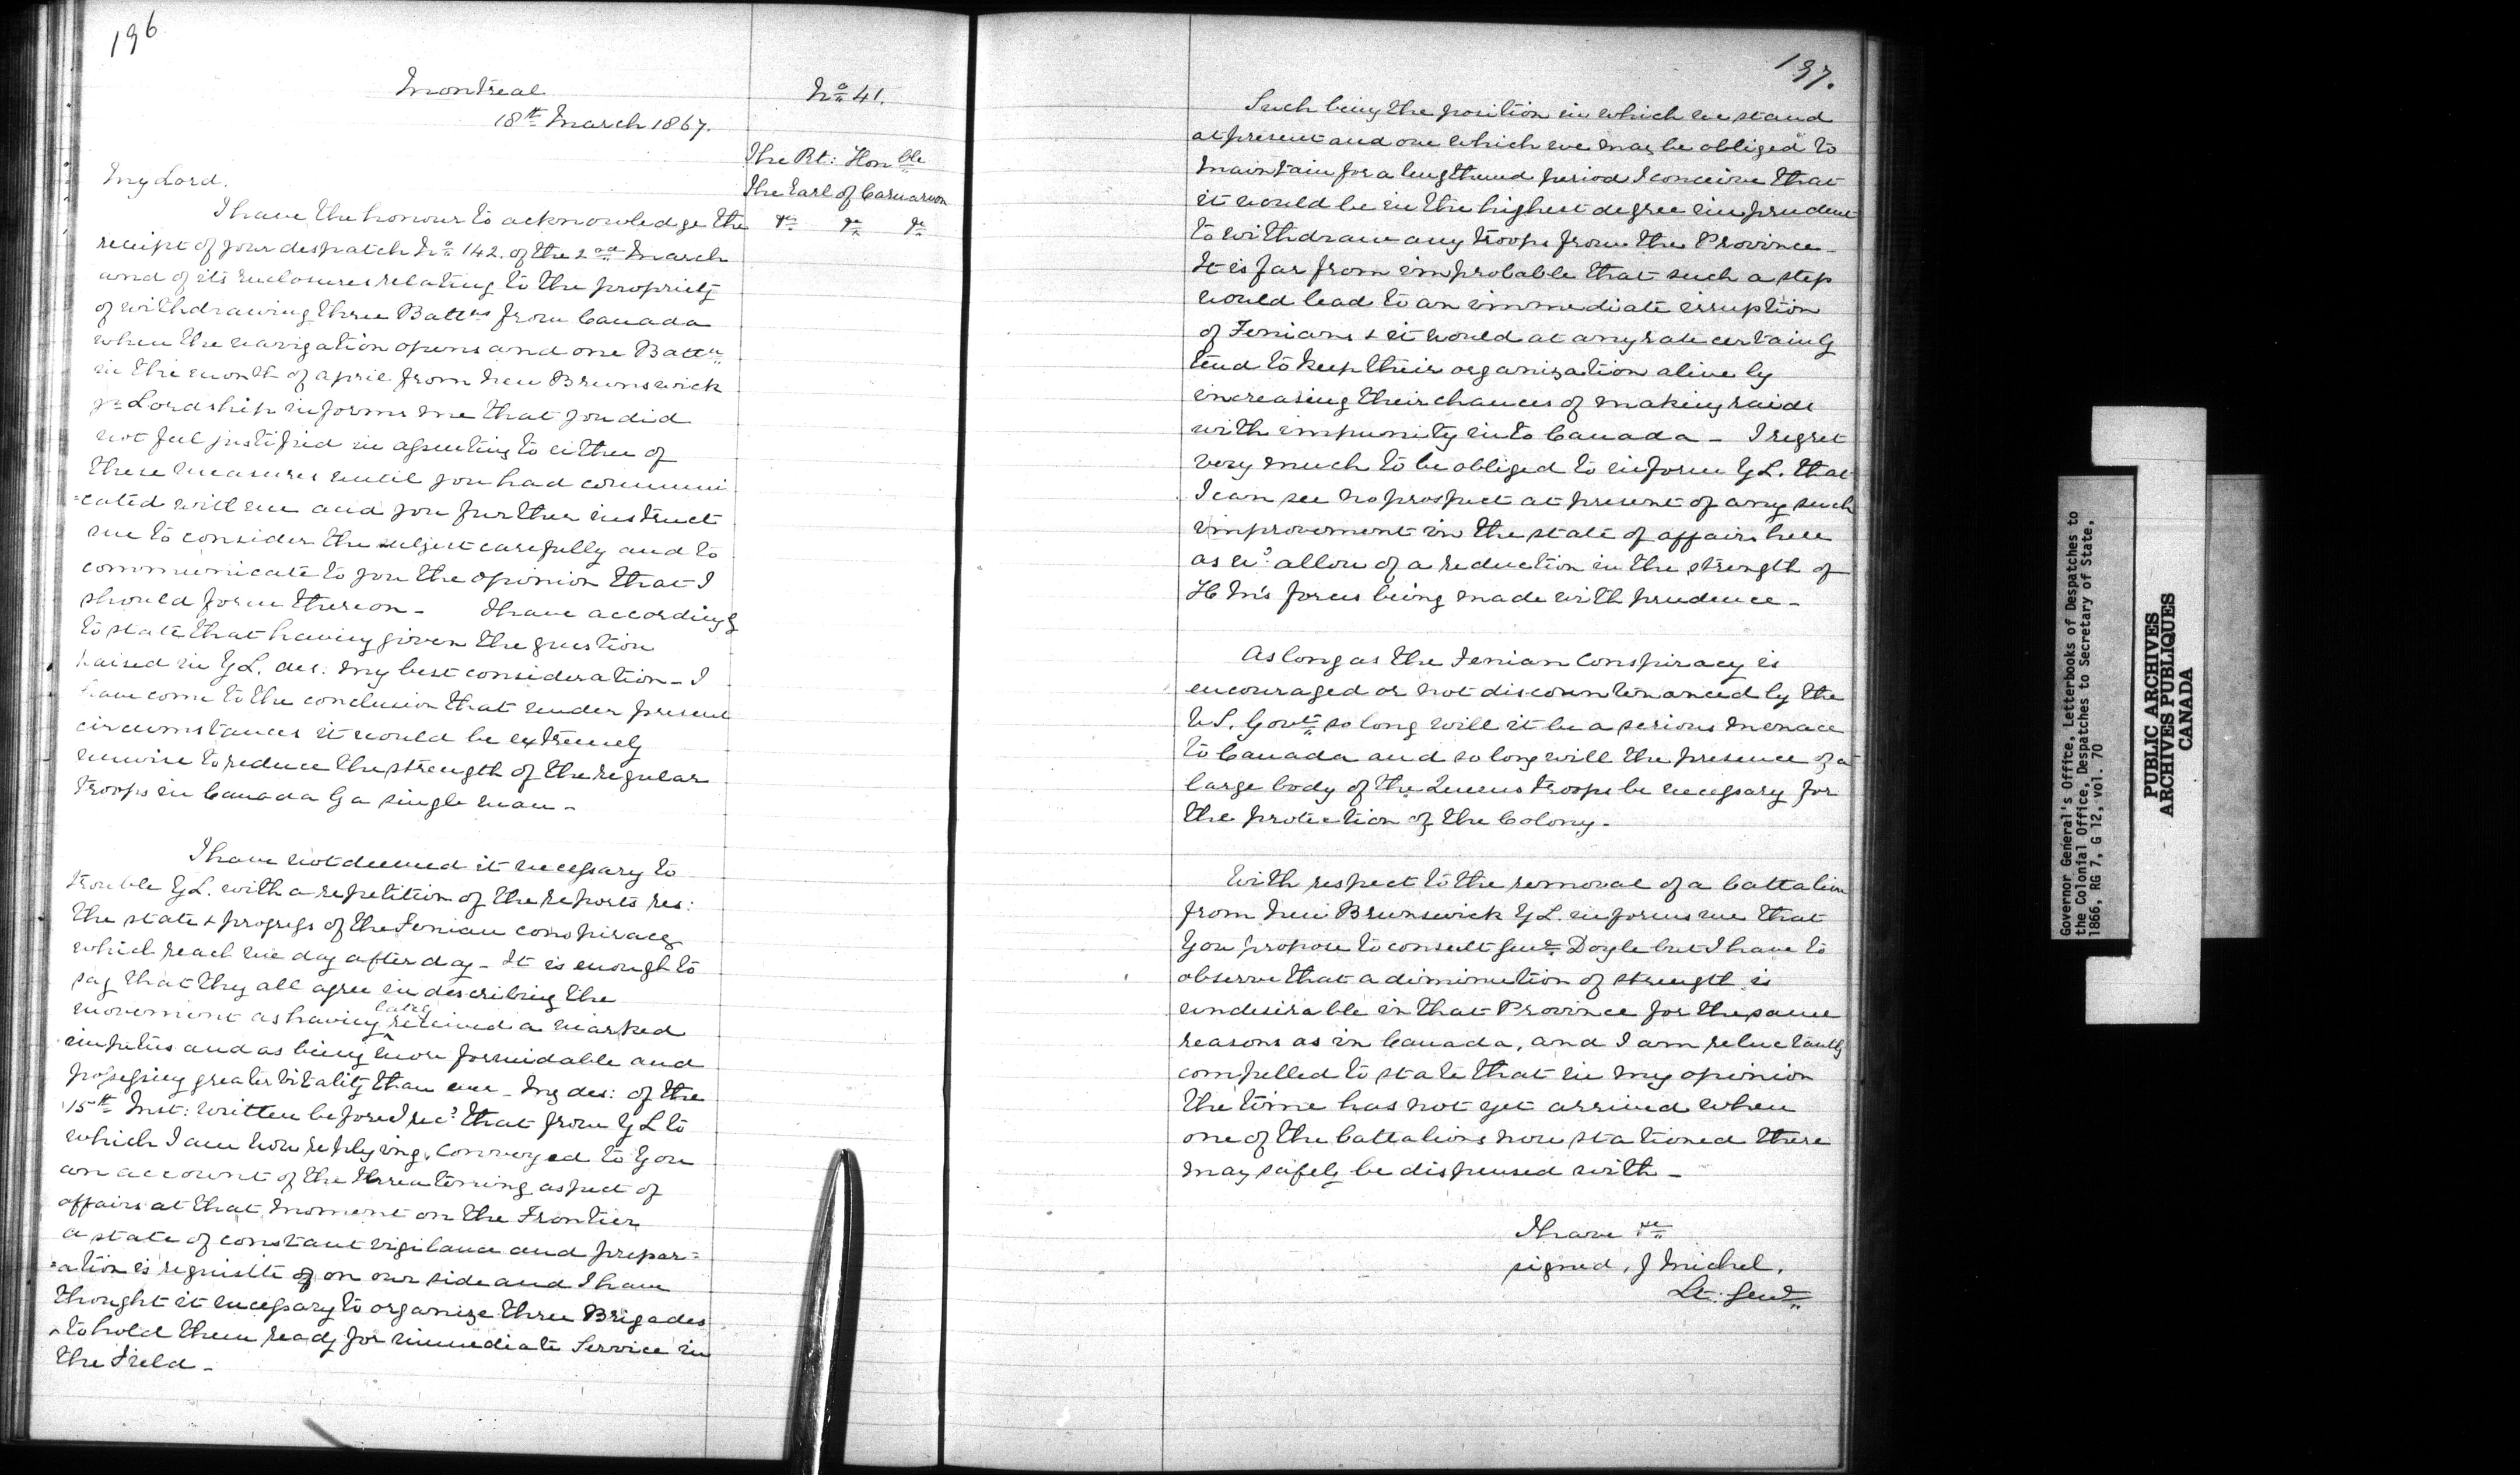 196
Montreal
18th March 1867.
No 41.
The Rt: Honble
The Earl of Carnarvon
&c &c &c
My Lord.
I have the honour to acknowledge the
receipt of your despatch No 142. of the 2nd March
and of its enclosures relating to the propriety
of withdrawing three Battns from Canada
when the navigation opens and one Battn
in the month of April from New Brunswick
yr Lordship informs me that you did
not feel justified in assenting to either of
these measures until you had communi
=cated with me and you further instruct
me to consider the subject carefully and to
communicate to you the opinion that I
should form thereon - I have accordingly
to state that having given the question
raised in Y L. des: my best consideration - I
have come to the conclusion that under present
circumstances it would be extremely
unwise to reduce the strength of the regular
troops in Canada by a single man -
I have not deemed it necessary to
trouble Y L. with a repetition of the reports res:
the state & progress of the Fenian conspiracy
which reach me day after day - It is enough to
say that they all agree in describing the
movement as having lately received a marked
impetus and as being more formidable and
possessing greater vitality than ever - My des: of the
15th Inst: written before I recd that from Y L to
which I am now replying, conveyed to you
an account of the threatening aspect of
affairs at that moment on the Frontier
a state of constant vigilance and prepar=
=ation is requisite on our side and I have
thought it necessary to organize three Brigades
& to hold them ready for immediate Service in
the Field -
197.
Such being the position in which we stand
at present and one which we may be obliged to
maintain for a lengthened period I conceive that
it would be in the highest degree imprudent
to withdraw any troops from the Province -
It is far from improbable that such a step
would lead to an immediate irruption
of Fenians & it would at any rate certainly
tend to keep their organization alive by
increasing their chances of making raids
with impunity into Canada - I regret
very much to be obliged to inform Y L. that
I can see no prospect at present of any such
improvement in the state of affairs here
as wd allow of a reduction in the strength of
H M's forces being made with prudence -
As long as the Fenian Conspiracy is
encouraged or not discountenanced by the
U S. Govt so long will it be a serious menace
to Canada and so long will the presence of a
large body of the Queens troops be necessary for
the protection of the Colony -
With respect to the removal of a battalion
from New Brunswick Y L. informs me that
you propose to consult Genl Doyle but I have to
observe that a diminution of strength is
undesirable in that Province for the same
reasons as in Canada, and I am reluctantly
compelled to state that in my opinion
the time has not yet arrived when
one of the battalions now stationed there
may safely be dispensed with -
I have &c
signed, J Michel,
Lt: Genl
Governor General's Office, Letterbooks of Despatches to
the Colonial Office, Despatches to Secretary of State,
1866, RG 7, G 12, vol. 70
PUBLIC ARCHIVES
ARCHIVES PUBLIQUES
CANADA